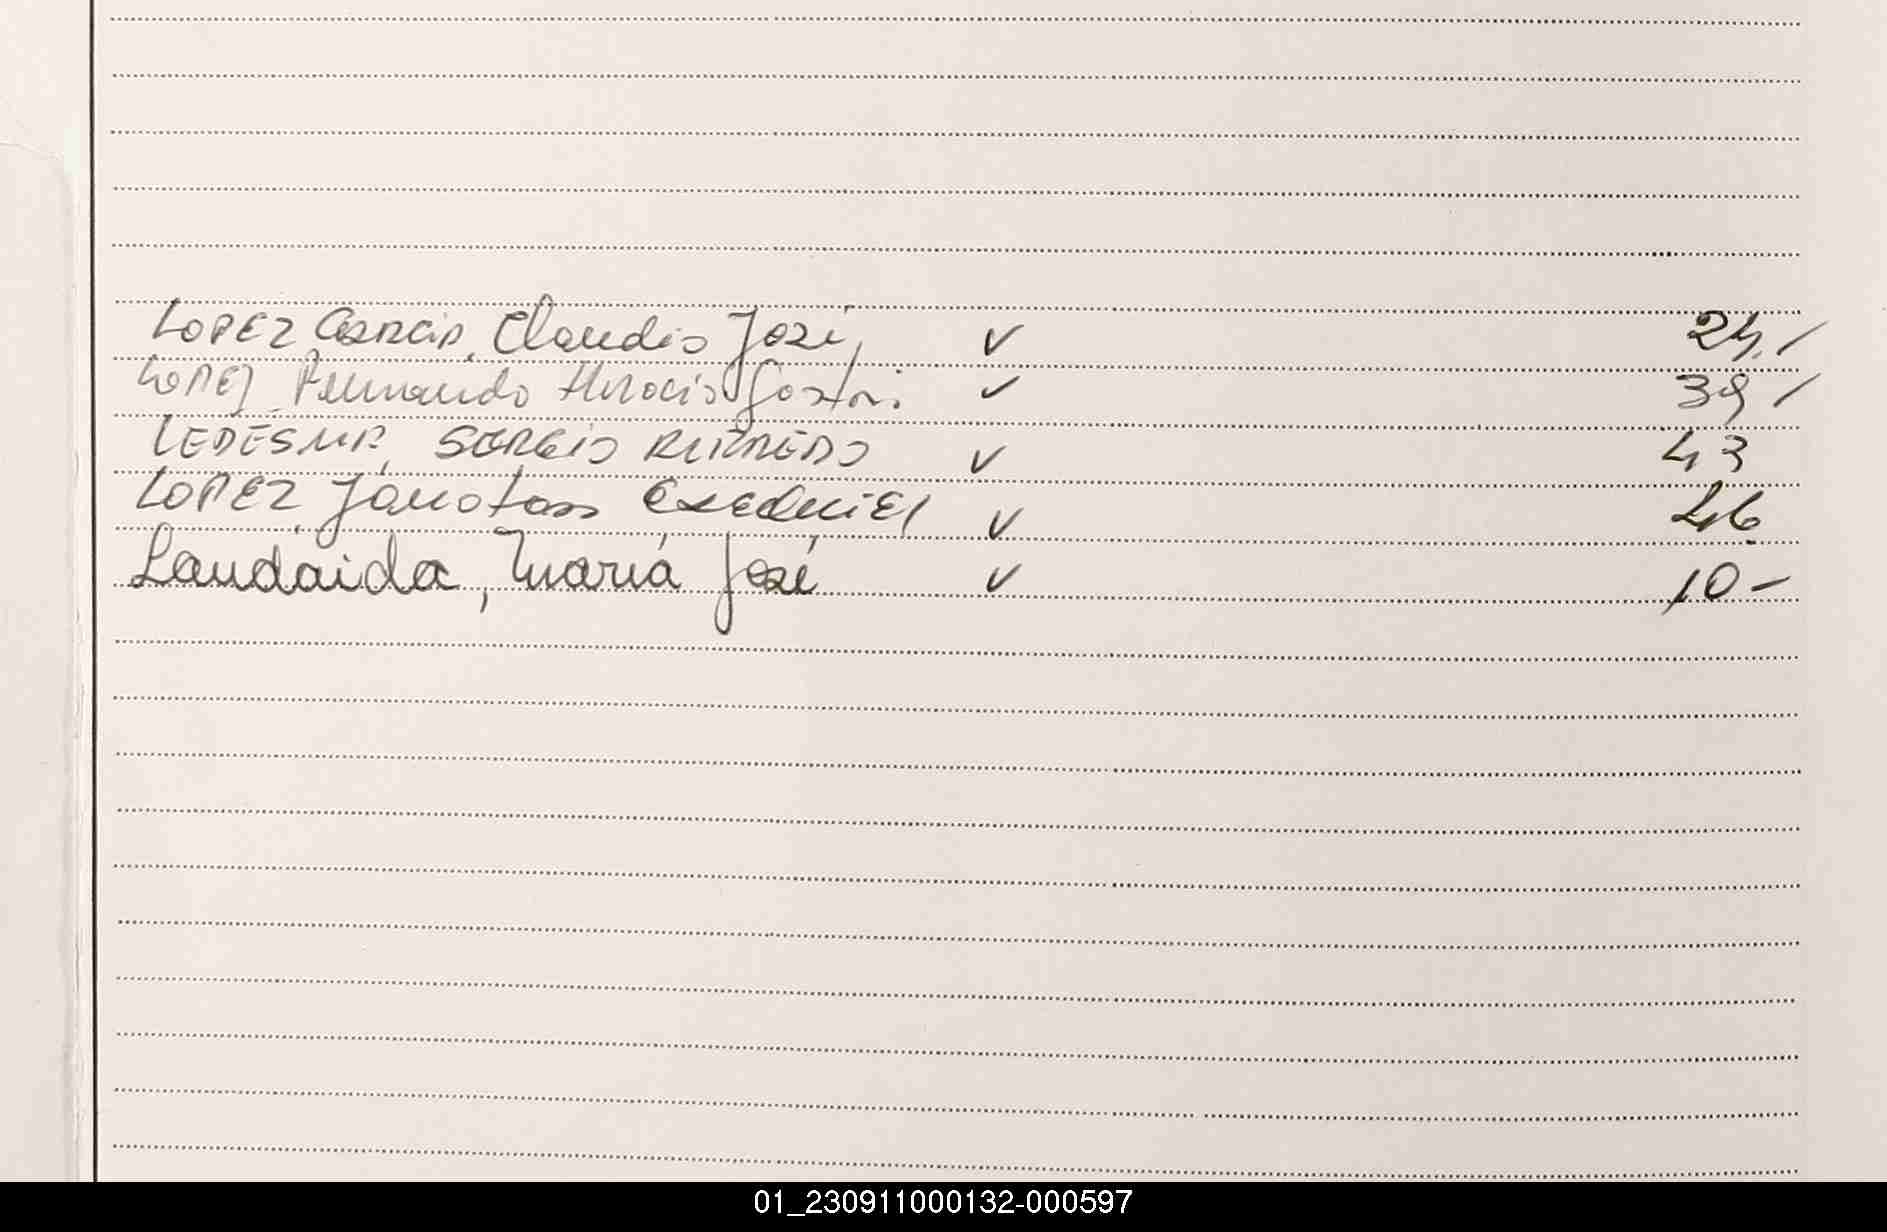 LOPEZ GARCIA, Claudio José, ✓ 24. /
LOPEZ, Fernando Horacio Gastón. ✓ 39 /
LEDESMA, SERGIO ALFREDO ✓ 43
LOPEZ, Jonatan EXEQUIEL ✓ 46
Landaida, María José ✓ 10 -
01_230911000132-000597